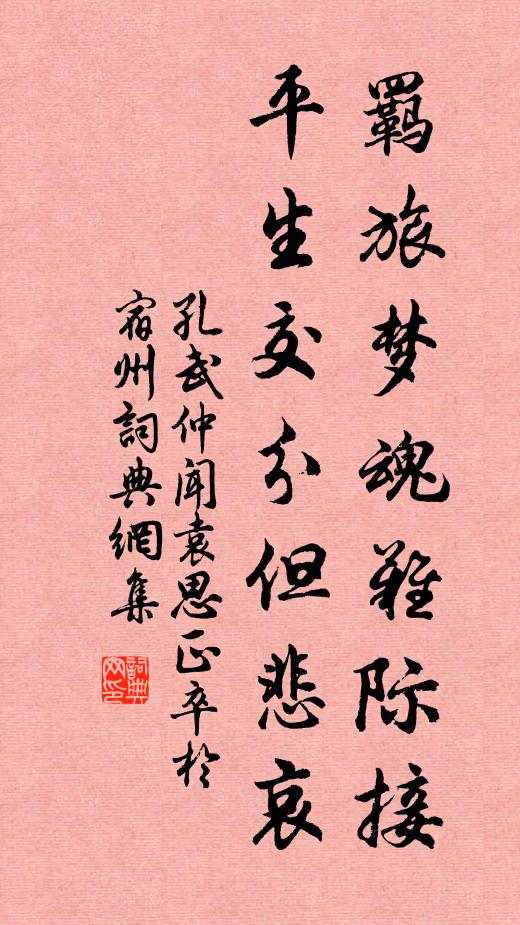 羈旅梦魂难际接
平生交分但悲哀
孔武仲闻袁思正卒於
宿州詞典網集
詞典网印